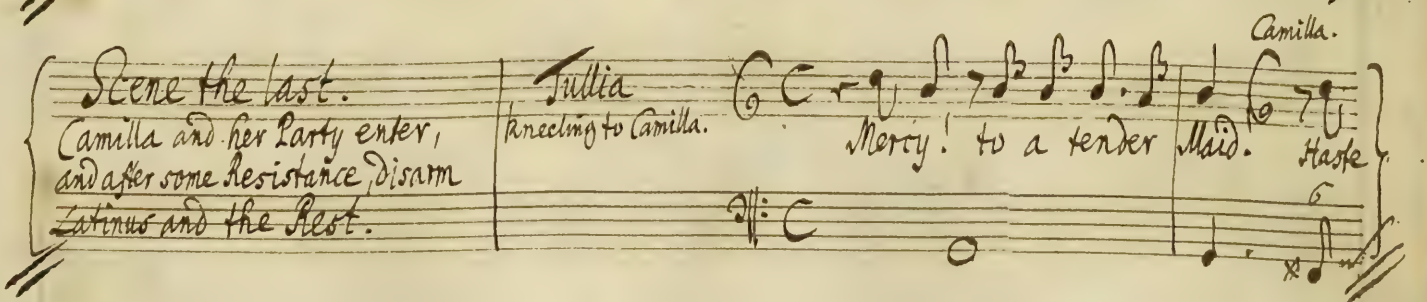 Scene the last.
Camilla and her Party enter,
and after some Resistance, disarm
Latinus and the Rest.
Tullia
kneeling to Camilla.
Camilla.
Mercy! to a tender Maid! Haste
6